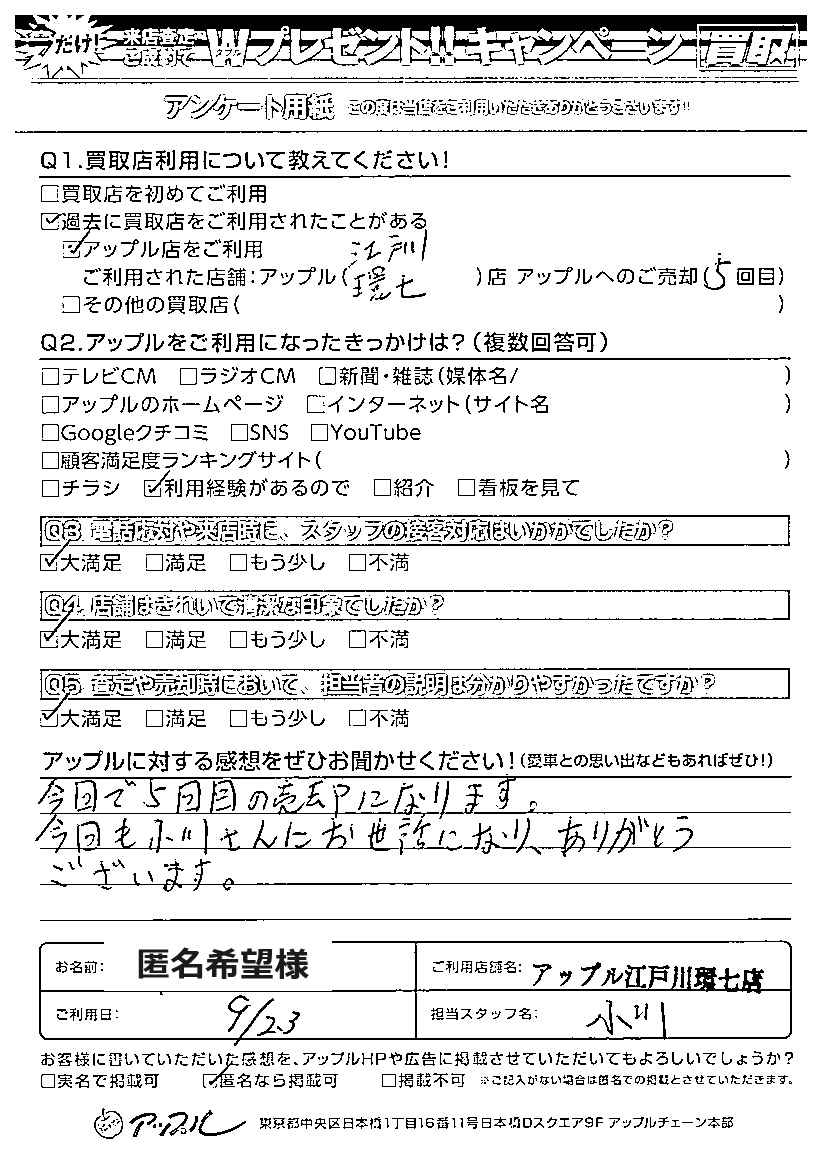 だけ! 来店査定・ご成約で Wプレゼント!!キャンペーン 買取
アンケート用紙 この度は当店をご利用いただきありがとうございます!!
Q1.買取店利用について教えてください!
□買取店を初めてご利用
☑過去に買取店をご利用されたことがある
☑アップル店をご利用
ご利用された店舗:アップル(江戸川環七)店 アップルへのご売却(5回目)
□その他の買取店( )
Q2.アップルをご利用になったきっかけは?(複数回答可)
□テレビCM □ラジオCM □新聞・雑誌(媒体名/ )
□アップルのホームページ □インターネット(サイト名 )
□Googleクチコミ □SNS □YouTube
□顧客満足度ランキングサイト( )
□チラシ ☑利用経験があるので □紹介 □看板を見て
Q3 電話応対や来店時に、スタッフの接客対応はいかがでしたか?
☑大満足 □満足 □もう少し □不満
Q4 店舗はきれいで清潔な印象でしたか?
☑大満足 □満足 □もう少し □不満
Q5 査定や売却時において、担当者の説明は分かりやすかったですか?
☑大満足 □満足 □もう少し □不満
アップルに対する感想をぜひお聞かせください!(愛車との思い出などもあればぜひ!)
今回で5回目の売却になります。
今回も小川さんにお世話になり、ありがとう
ございます。
お名前: 匿名希望様 ご利用店舗名: アップル江戸川環七店
ご利用日: 9/23 担当スタッフ名: 小川
お客様に書いていただいた感想を、アップルHPや広告に掲載させていただいてもよろしいでしょうか?
□実名で掲載可 ☑匿名なら掲載可 □掲載不可 ※ご記入がない場合は匿名での掲載とさせていただきます。
アップル 東京都中央区日本橋1丁目16番11号日本橋Dスクエア9F アップルチェーン本部